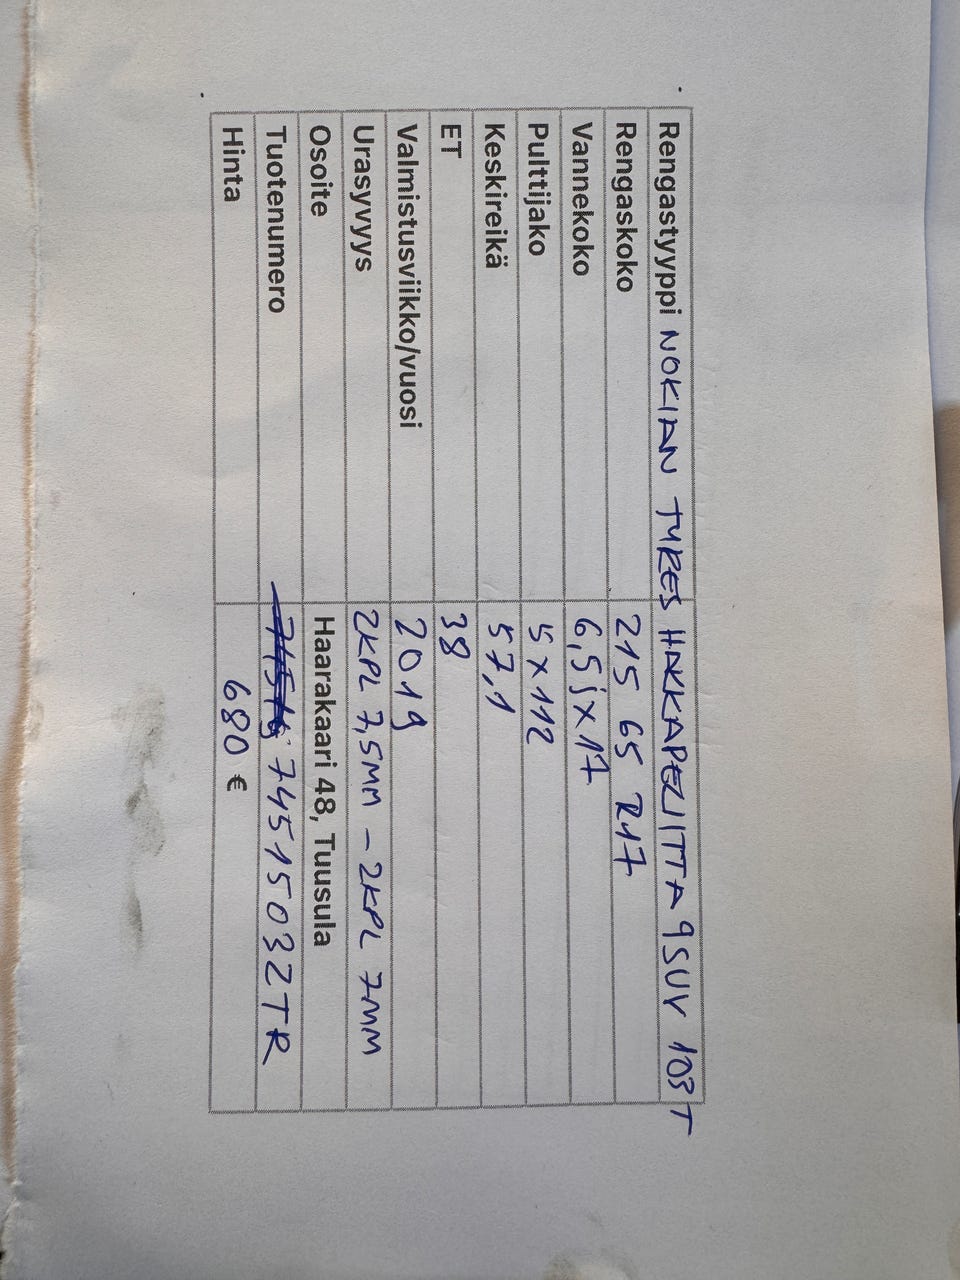 Rengastyyppi NOKIAN TYRES HAKKAPELIITTA 9SUV 103T
Rengaskoko 215 65 R17
Vannekoko 6,5jx17
Pulttijako 5x112
Keskireikä 57,1
ET 38
Valmistusviikko/vuosi 2019
Urasyvyys 2KPL 7,5MM - 2KPL 7MM
Osoite Haarakaari 48, Tuusula
Tuotenumero 74515032TR
Hinta 680 €